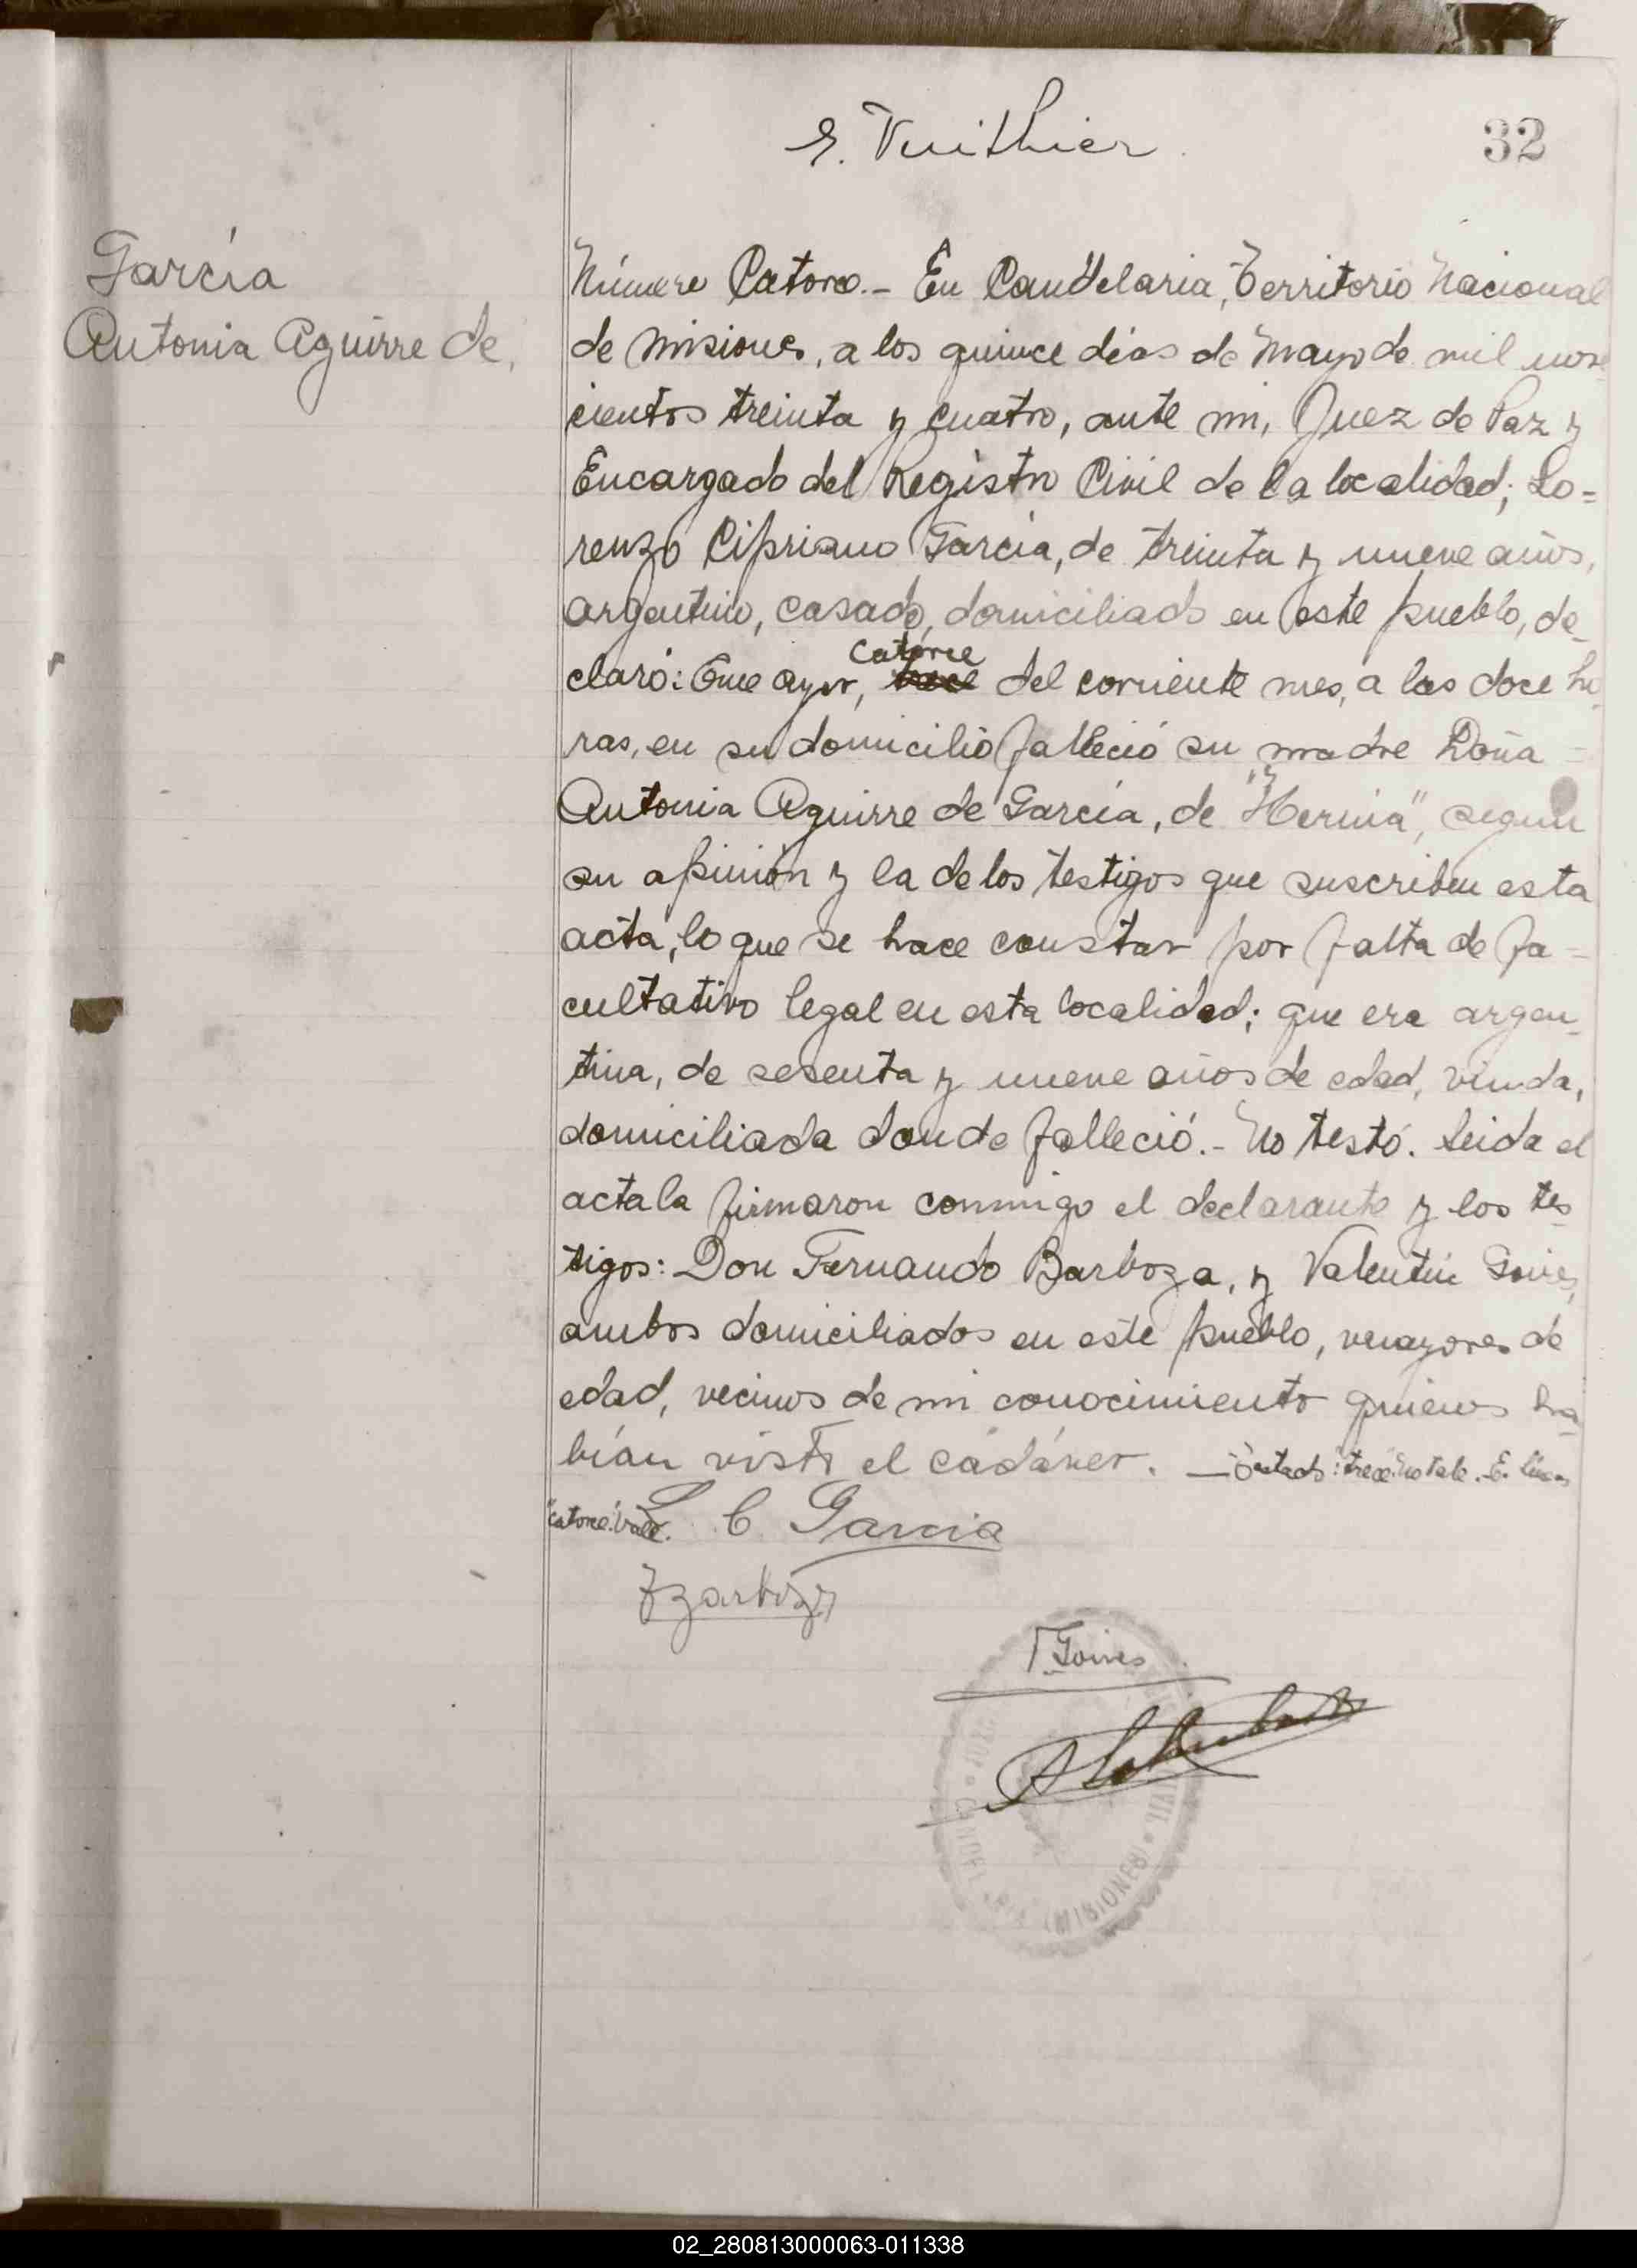 E. Vuithier
32
García
Antonia Aguirre de,
Número Catorce.- En Candelaria, Territorio Nacional
de Misiones, a los quince días de Mayo de mil nove
cientos treinta y cuatro, ante mi, Juez de Paz y
Encargado del Registro Civil de la localidad; Lo=
renzo Cipriano García, de treinta y nueve años,
argentino, casado, domiciliado en este pueblo, de-
catorce
claró: Que ayer, trece del corriente mes, a las doce ho-
ras, en su domicilio falleció su madre Doña =
Antonia Aguirre de García, de "Hernia", según
su opinión y la de los testigos que suscriben esta
acta, lo que se hace constar por falta de fa=
cultativo legal en esta localidad; que era argen-
tina, de sesenta y nueve años de edad, viuda,
domiciliada donde falleció.- No testó. Leida el
acta la firmaron conmigo el declarante y los tes-
tigos: Don Fernando Barboza, y Valentín Goires,
ambos domiciliados en este pueblo, mayores de
edad, vecinos de mi conocimiento quienes ha-
bían visto el cadáver. — Testado: "trece" No vale. E. líneas
"catorce" Vale.
L C. Garcia
V Goires
JUZ
CIVIL
CANDEL RIA (MISIONES)
02_280813000063-011338